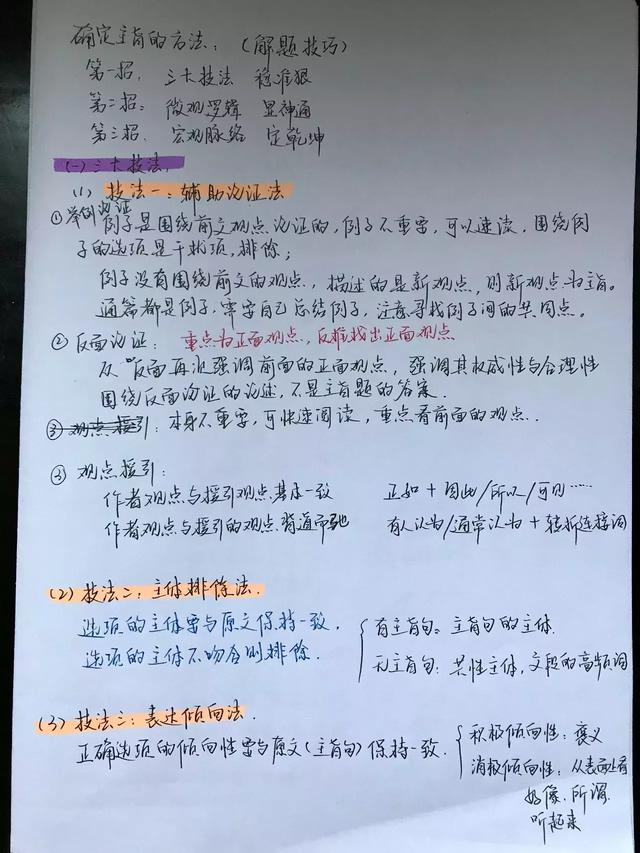 确定主旨的方法：（解题技巧）
第一招、三大技法 稳准狠
第二招：微观逻辑 显神通
第三招、宏观脉络 定乾坤
(一)三大技法、
(1) 技法一：辅助论证法
①举例论证
例子是围绕前文观点论证的，例子不重要，可以速读，围绕例
子的选项是干扰项，排除；
例子没有围绕前文的观点，描述的是新观点，则新观点为主旨。
通篇都是例子，需要自己总结例子，注意寻找例子间的共同点。
②反面论证：重点为正面观点，反推找出正面观点
从反面再次强调前面的正面观点，强调其权威性与合理性
围绕反面论证的论述，不是主旨题的答案.
③观点援引：本身不重要，可快速阅读，重点看前面的观点.
③观点援引：
作者观点与援引观点基本一致 正如+因此/所以/可见……
作者观点与援引的观点背道而驰 有人认为/通常认为+转折连接词
(2) 技法二：主体排除法.
选项的主体要与原文保持一致，
选项的主体不吻合则排除.
有主旨句：主旨句的主体.
无主旨句：共性主体，文段的高频词
(3) 技法三：表达倾向法.
正确选项的倾向性要与原文(主旨句)保持一致.
积极倾向性：褒义
消极倾向性：从表面上看
好像、所谓
听起来